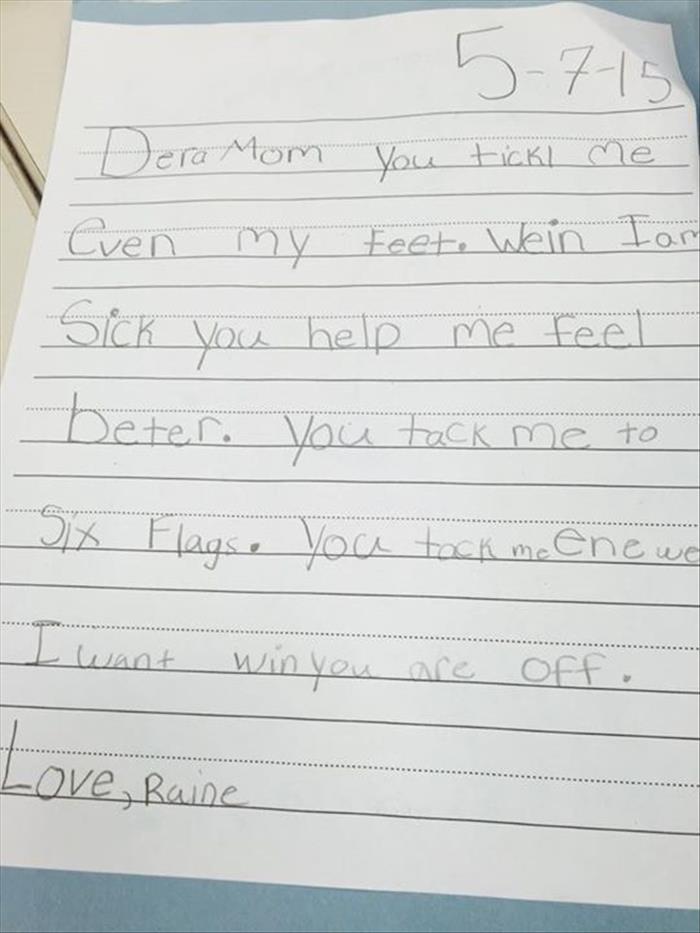 5-7-15
Dera Mom You tickl me
Even my feet. Wein I am
Sick you help me feel
beter. You tack me to
Six Flags. You tack me ene we
I want win you are off.
Love, Raine